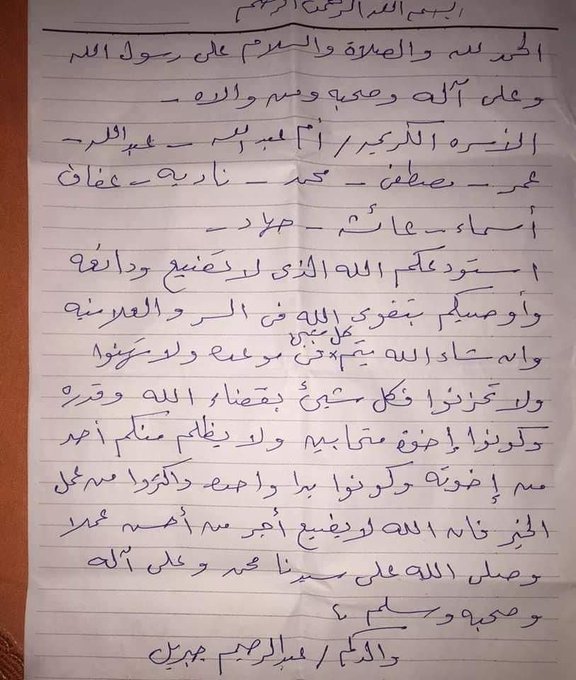 بسم الله الرحمن الرحيم
الحمد لله والصلاة والسلام على رسول الله
وعلى آله وصحبه ومن والاه -
الأسره الكريمه / أم عبد الله - عبدالله -
عمر - مصطفى - محمد - ناديه - عفاف
أسماء - عائشه - جهاد -
استودعكم الله الذى لا تضيع ودائعه
وأوصيكم بتقوى الله فى السر والعلانيه
وان شاء الله يتم كل شيئ فى موعده ولا تهنوا
ولا تحزنوا فكل شيئ بقضاء الله وقدره
وكونوا إخوة متحابين ولا يظلم منكم أحد
من إخوته وكونوا يدا واحده واكثروا من عمل
الخير فان الله لا يضيع أجر من أحسن عملا
وصلى الله على سيدنا محمد وعلى آله
وصحبه وسلم ،
والدكم / عبدالرحيم جبريل